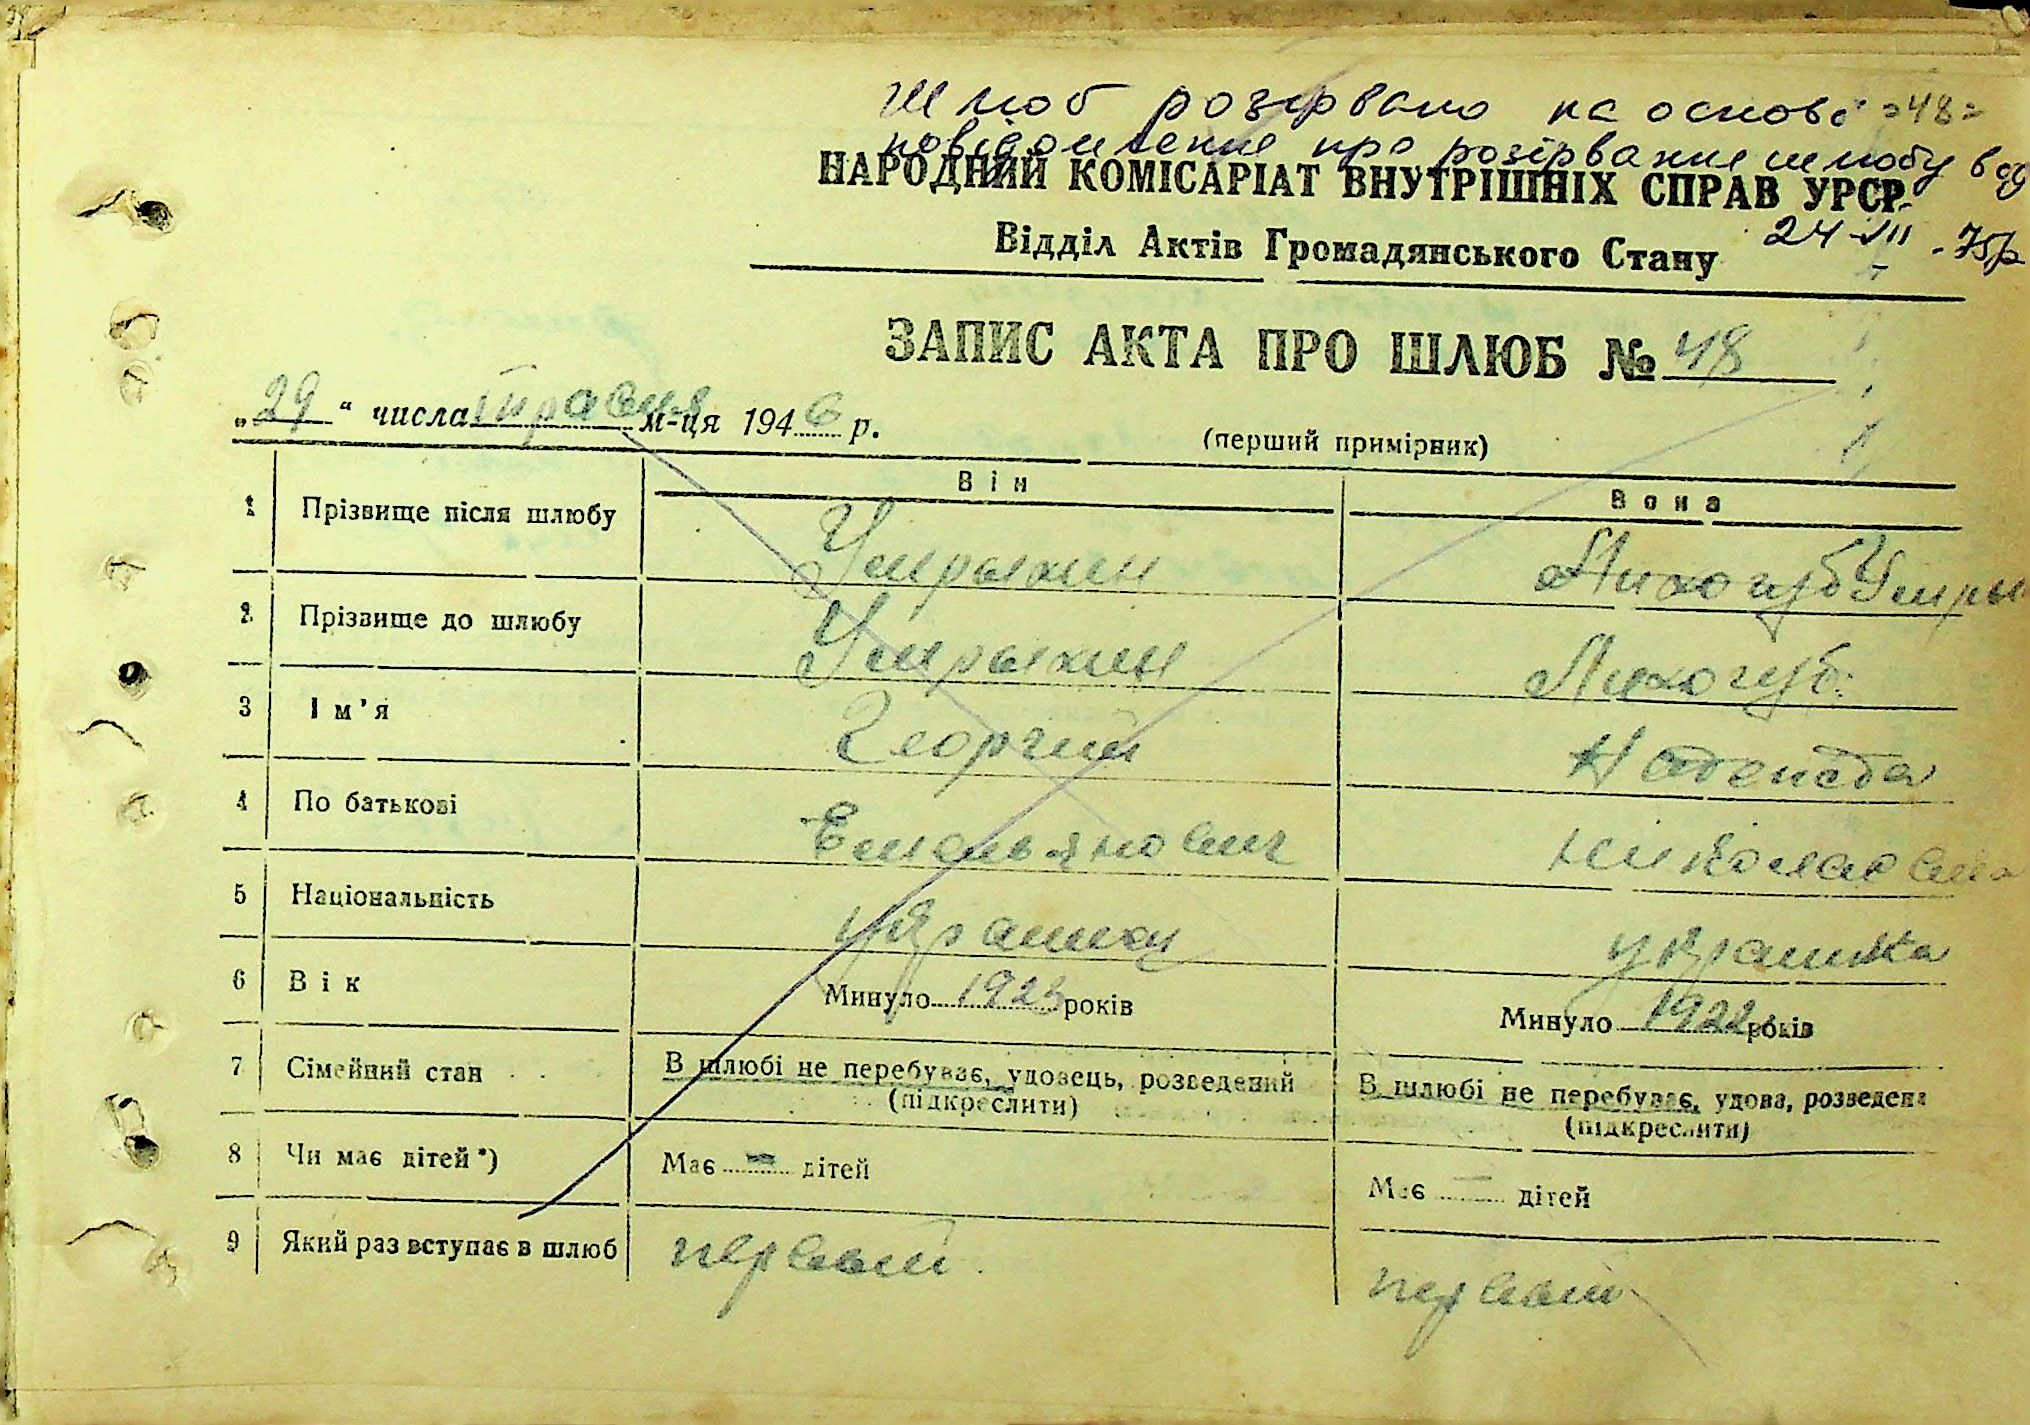 Шлюб розірвано на основі =48=
повідомлення про розірвання шлюбу від
НАРОДНИЙ КОМІСАРІАТ ВНУТРІШНІХ СПРАВ УРСР
24-VII-75р
Відділ Актів Громадянського Стану
ЗАПИС АКТА ПРО ШЛЮБ № 48
„29“ числа травня м-ця 1946 р.
(перший примірник)
Він Вона
1 Прізвище після шлюбу
2 Прізвище до шлюбу Лихогуб
3 Ім'я Георгий Надежда
4 По батькові Емельянович Николаевна
5 Національність украинец украинка
6 Вік Минуло 1923 років Минуло 1922 років
7 Сімейний стан В шлюбі не перебуває, удовець, розведений В шлюбі не перебуває, удова, розведена
(підкреслити) (підкреслити)
8 Чи має дітей*) Має - дітей Має - дітей
9 Який раз вступає в шлюб первый первый